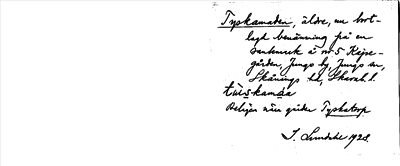 Tyskamaden, äldre, nu bort-
lagd benämning på en
sankmark å nr 5 Kejse-
gården, Jungs by, Jungs sn,
Skånings hd, Skarab. l.
tŭiskamaa
Belägen nära gränsen Tyskatorp
J. 1928.